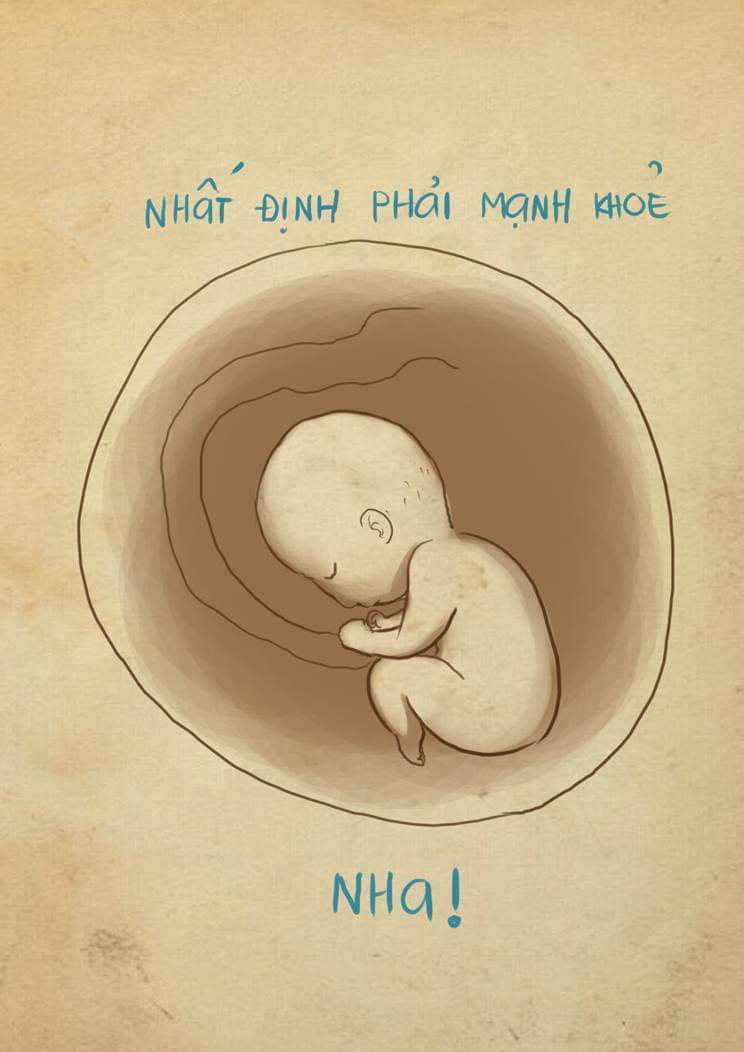 NHẤT ĐỊNH PHẢI MẠNH KHOẺ
NHA!